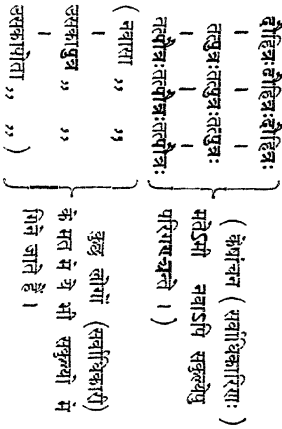 दौहित्रः दौहित्रः दौहित्रः
| | |
तत्पुत्रः तत्पुत्रः तत्पुत्रः
| | |
तत्पौत्रः तत्पौत्रः तत्पौत्रः
( केषांचन ( सर्वाधिकारिणाः )
मतेऽमी नवाऽपि सकुल्येषु
परिगण्यन्ते । )
( नवासा ” ”
| | |
उसकापुत्र ” ”
| | |
उसकापोता ” ” )
कुछ लोगों (सर्वाधिकारी)
के मत में ये भी सकुल्यों में
गिने जाते हैं ।